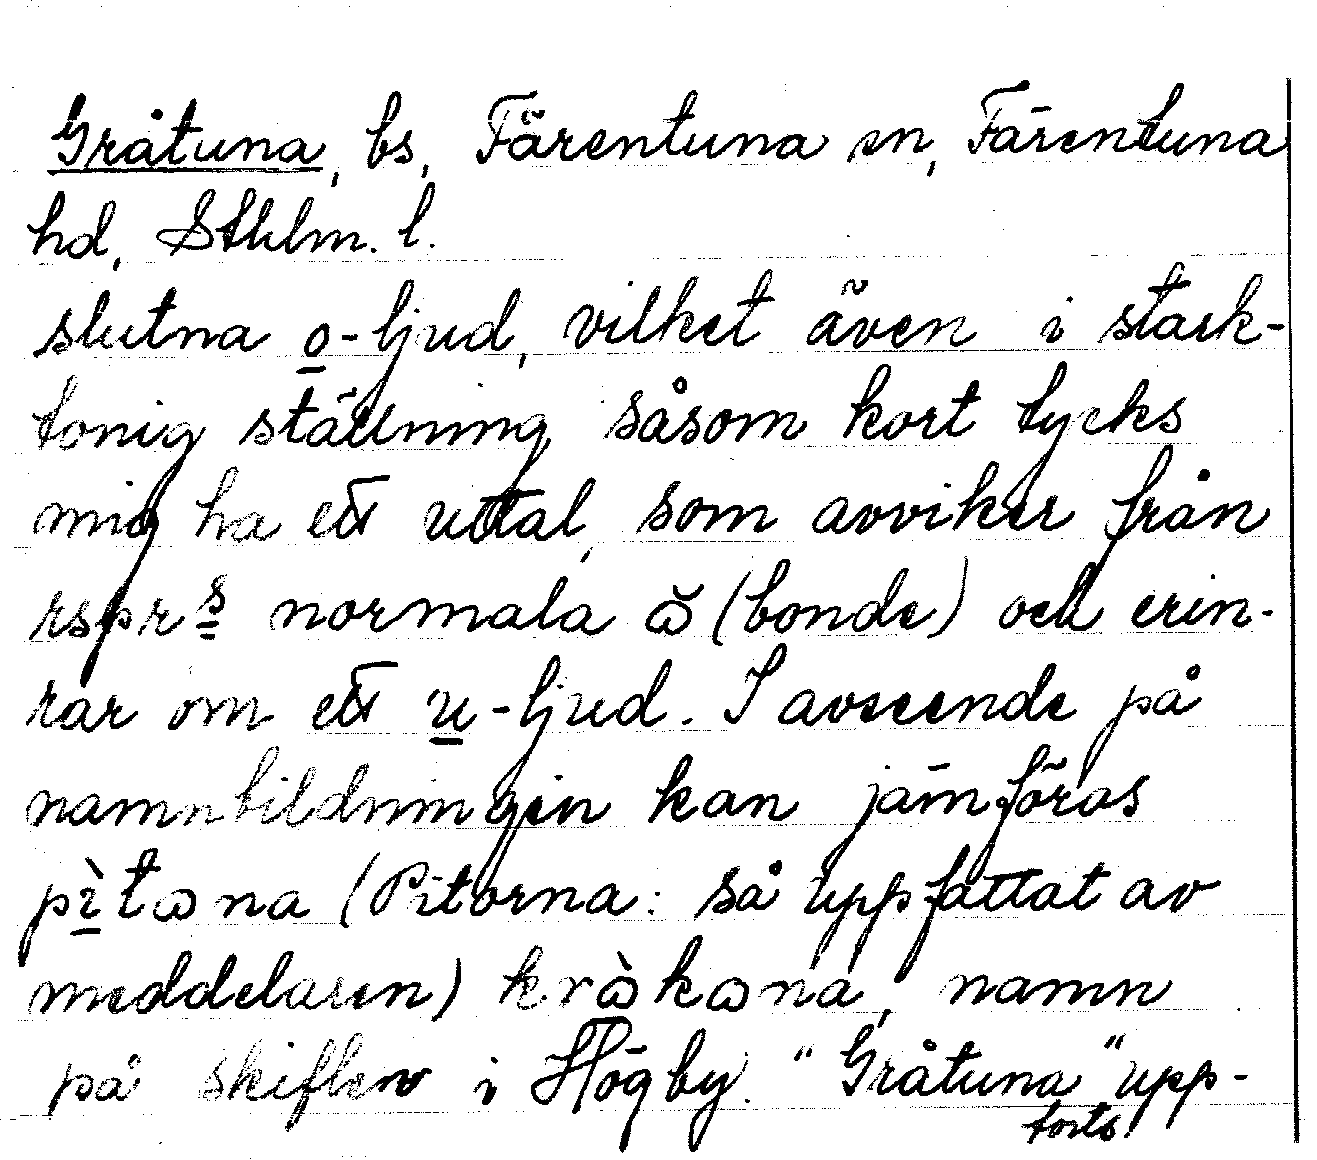 Gråtuna, bs, Färentuna sn, Färentuna
hd, Sthlm. l.
slutna o-ljud, vilket även i stark-
tonig ställning såsom kort tycks
mig ha ett uttal, som avviker från
rsprs normala ω̆ (bonde) och erin-
rar om ett u-ljud. I avseende på
namnbildningen kan jämföras
pìtωna (Pitorna: så uppfattat av
meddelaren) krὼkωna, namn
på skiften i Högby. "Gråtuna" upp-
forts